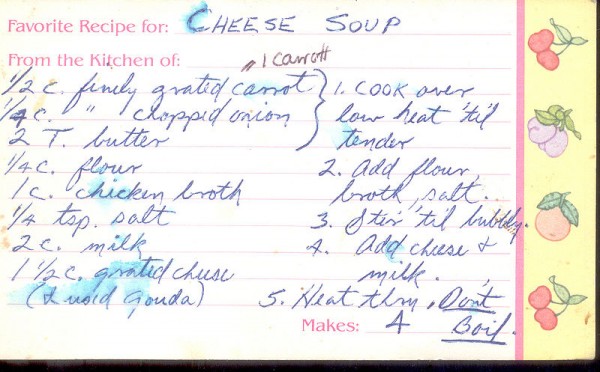 Favorite Recipe for: CHEESE SOUP
From the Kitchen of:
" 1 carrott
1/2 c. finely grated carrot
1/4 c. " chopped onion
2 T. butter
1. COOK over
low heat 'til
tender
1/4 c. flour
1 c. chicken broth
1/4 tsp. salt
2 c. milk
1 1/2 c. grated cheese
(I used Gouda)
2. Add flour,
broth, salt.
3. Stir 'til bubbly.
4. Add cheese &
milk.
5. Heat thru, Don't
Boil.
Makes: 4